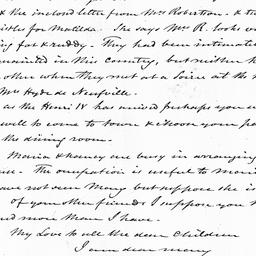 & the inclosed letter from Mrs Robertson - & t
istle for Matilda. She says Mrs R. looks w
ing fat & ruddy - They had been intimate
uainted in this Country, but neither k
other when they met at a Soiree at the
Mrs Hyde de Neufville.
as the Henri IV has arrived perhaps you
will to come to town & choose your pa
the dining room.
Maria & are busy in arranging
The occupation is useful to Mari
ave not seen Mary but suppose she is
of your other friends I suppose you
ed more than I have.
My Love to all the dear Children
I am dear Mary